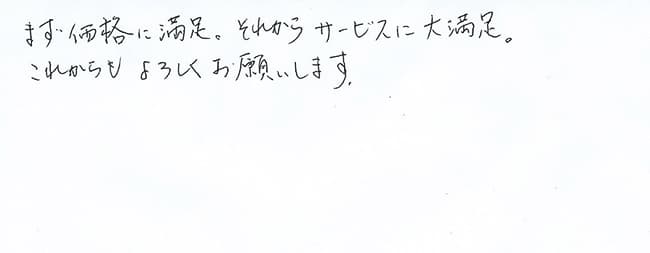 まず価格に満足。それからサービスに大満足。
これからもよろしくお願いします.